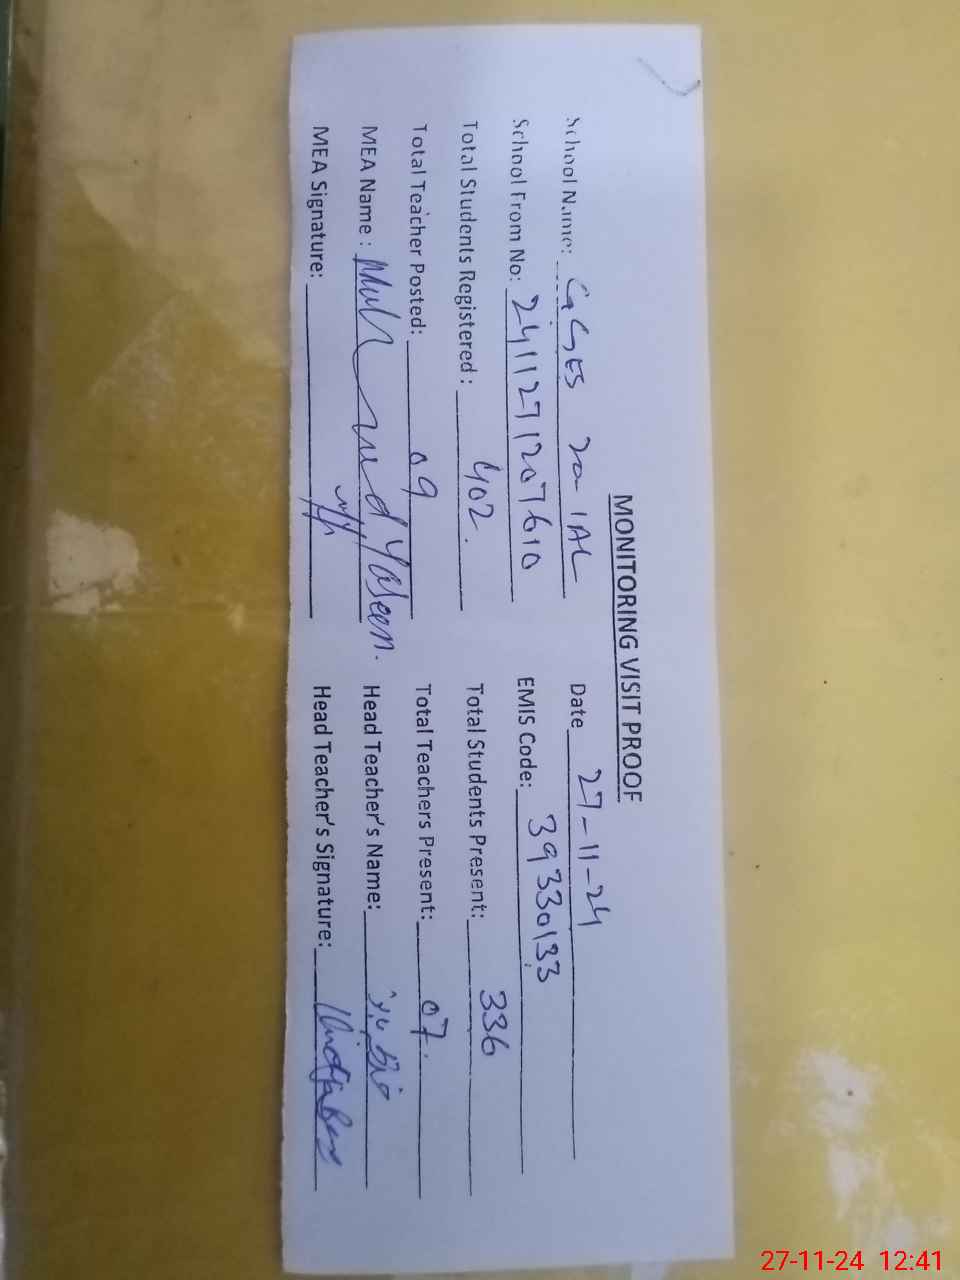 MONITORING VISIT PROOF
School Name: GGES 70-1AL Date 27-11-24
School From No: 2411271207610 EMIS Code: 39330133
Total Students Registered: 402. Total Students Present: 336
Total Teacher Posted: 09 Total Teachers Present: 07.
MEA Name: Yaseen. Head Teacher's Name:
MEA Signature: Head Teacher's Signature:
27-11-24 12:41